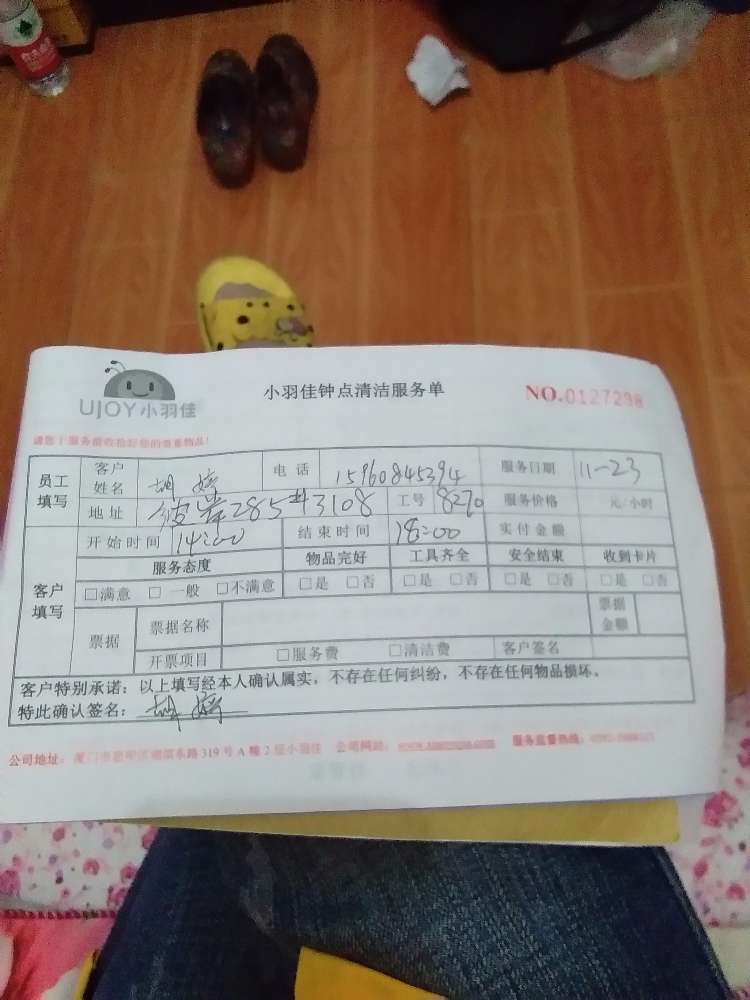 UJOY小羽佳
小羽佳钟点清洁服务单
NO.0127298
员工填写 客户姓名 胡婷 电话 15960845394 服务日期 11-23
地址 285#3108 工号 8270 服务价格 元/小时
客户填写 开始时间 14:00 结束时间 18:00 实付金额
服务态度 物品完好 工具齐全 安全结束 收到卡片
□满意 □一般 □不满意 □是 □否 □是 □否 □是 □否 □是 □否
票据 票据名称 票据金额
开票项目 □服务费 □清洁费 客户签名
客户特别承诺:以上填写经本人确认属实,不存在任何纠纷,不存在任何物品损坏。
特此确认签名: 胡婷
公司地址: 路319号A幢2层小羽佳 公司网站: 服务监督热线: